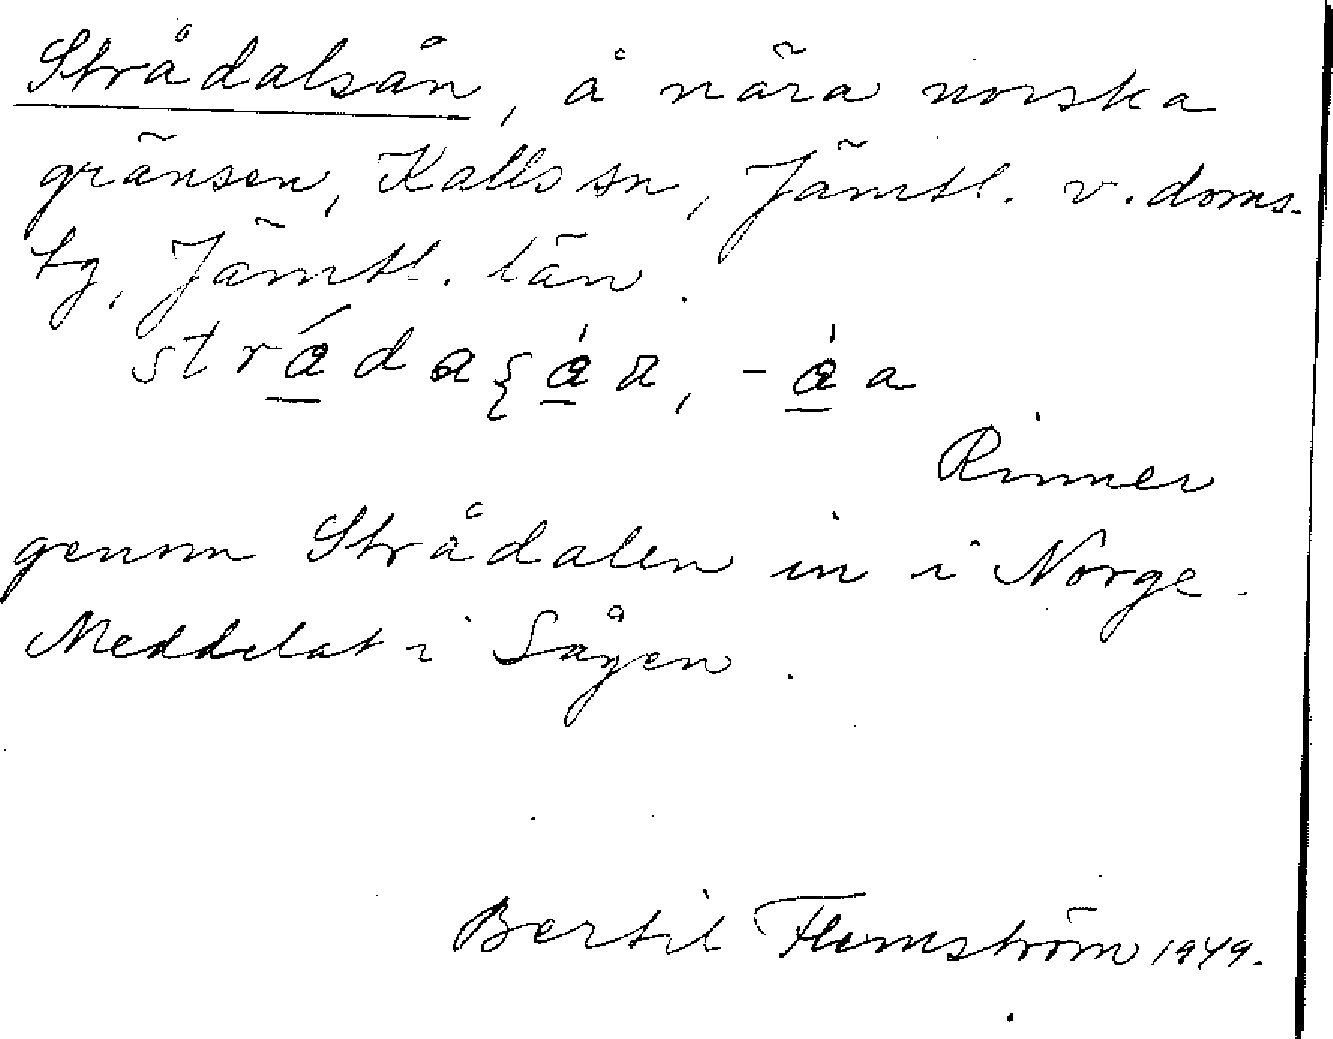 Strådalsån, å nära norska
gränsen, Kalls sn, Jämtl. v. doms-
tg, Jämtl. län.
Rinner
genom Strådalen in i Norge.
Meddelat i Sågen.
Bertil Flemström 1949.